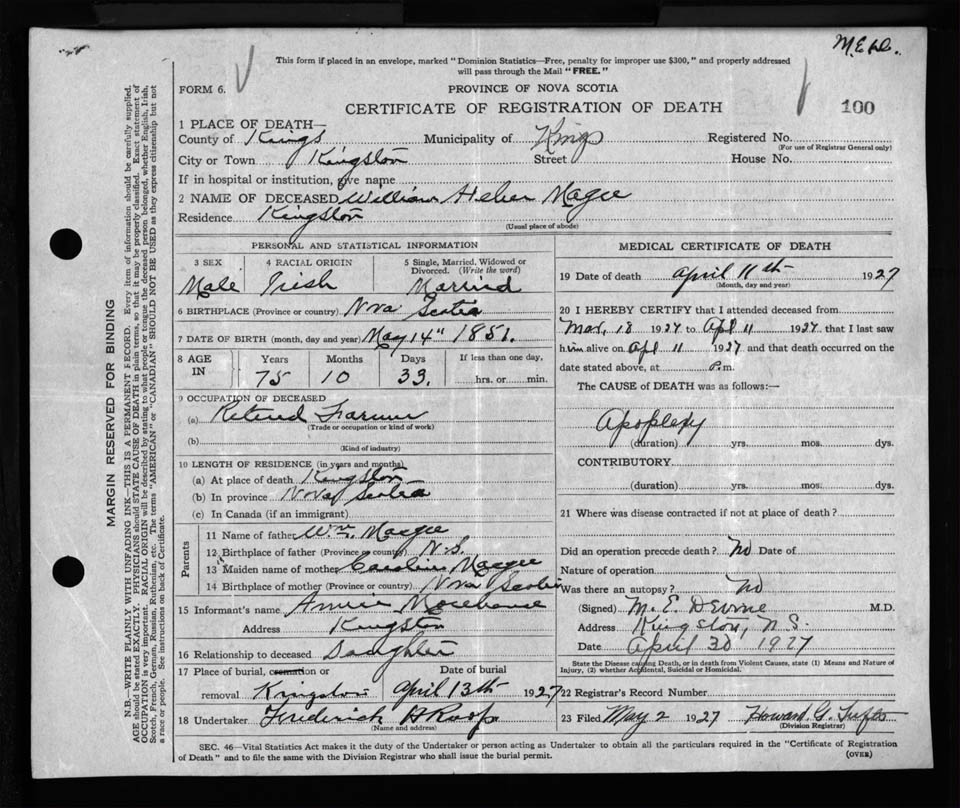 M.E.D.
This form if placed in an envelope, marked "Dominion Statistics—Free, penalty for improper use $300," and properly addressed
will pass through the Mail "FREE."
FORM 6.
PROVINCE OF NOVA SCOTIA
CERTIFICATE OF REGISTRATION OF DEATH
100
1 PLACE OF DEATH—
County of Kings Municipality of Kings Registered No.
(For use of Registrar General only)
City or Town Kingston Street House No.
If in hospital or institution, give name
2 NAME OF DECEASED William Heber Magee
Residence Kingston
(Usual place of abode)
PERSONAL AND STATISTICAL INFORMATION
3 SEX 4 RACIAL ORIGIN 5 Single, Married, Widowed or
Divorced. (Write the word)
Male Irish Married
6 BIRTHPLACE (Province or country) Nova Scotia
7 DATE OF BIRTH (month, day and year) May 14th 1851.
8 AGE IN Years Months Days If less than one day,
75 10 33. hrs. or min.
9 OCCUPATION OF DECEASED
(a) Retired Farmer
(Trade or occupation or kind of work)
(b)
(Kind of industry)
10 LENGTH OF RESIDENCE (in years and months)
(a) At place of death Kingston
(b) In province Nova Scotia
(c) In Canada (if an immigrant)
Parents
11 Name of father Wm. Magee
12 Birthplace of father (Province or country) N.S.
13 Maiden name of mother Caroline Magee
14 Birthplace of mother (Province or country) Nova Scotia
15 Informant's name Annie Morehouse
Address Kingston
16 Relationship to deceased Daughter
17 Place of burial, cremation or Date of burial
removal Kingston April 13th 1927
18 Undertaker Frederick A Roop
(Name and address)
MEDICAL CERTIFICATE OF DEATH
19 Date of death April 11th 1927
(Month, day and year)
20 I HEREBY CERTIFY that I attended deceased from
Mar. 18 1927 to Apl 11 1927 that I last saw
him alive on Apl 11 1927 and that death occurred on the
date stated above, at P.m.
The CAUSE OF DEATH was as follows:—
Apoplexy
(duration) yrs. mos. dys.
CONTRIBUTORY
(duration) yrs. mos. dys.
21 Where was disease contracted if not at place of death?
Did an operation precede death? No Date of
Nature of operation
Was there an autopsy? No
(Signed) M. E. Devine M.D.
Address Kingston, N.S.
Date April 30 1927
State the Disease causing Death, or in death from Violent Causes, state (1) Means and Nature of
Injury, (2) whether Accidental, Suicidal or Homicidal.
22 Registrar's Record Number
23 Filed May 2 1927 Howard G. Tufts
(Division Registrar)
SEC. 46—Vital Statistics Act makes it the duty of the Undertaker or person acting as Undertaker to obtain all the particulars required in the "Certificate of Registration
of Death" and to file the same with the Division Registrar who shall issue the burial permit.
(OVER)
MARGIN RESERVED FOR BINDING
N.B.—WRITE PLAINLY WITH UNFADING INK—THIS IS A PERMANENT RECORD. Every item of information should be carefully supplied.
AGE should be stated EXACTLY. PHYSICIANS should STATE CAUSE OF DEATH in plain terms, so that it may be properly classified. Exact statement of
OCCUPATION is very important. RACIAL ORIGIN will be described by stating to what people or tongue the deceased person belonged, whether English, Irish,
Scotch, French, German, Russian, Ruthenian, etc. The terms "AMERICAN" or "CANADIAN" SHOULD NOT BE USED as they express citizenship but not
a race or people. See instructions on back of Certificate.